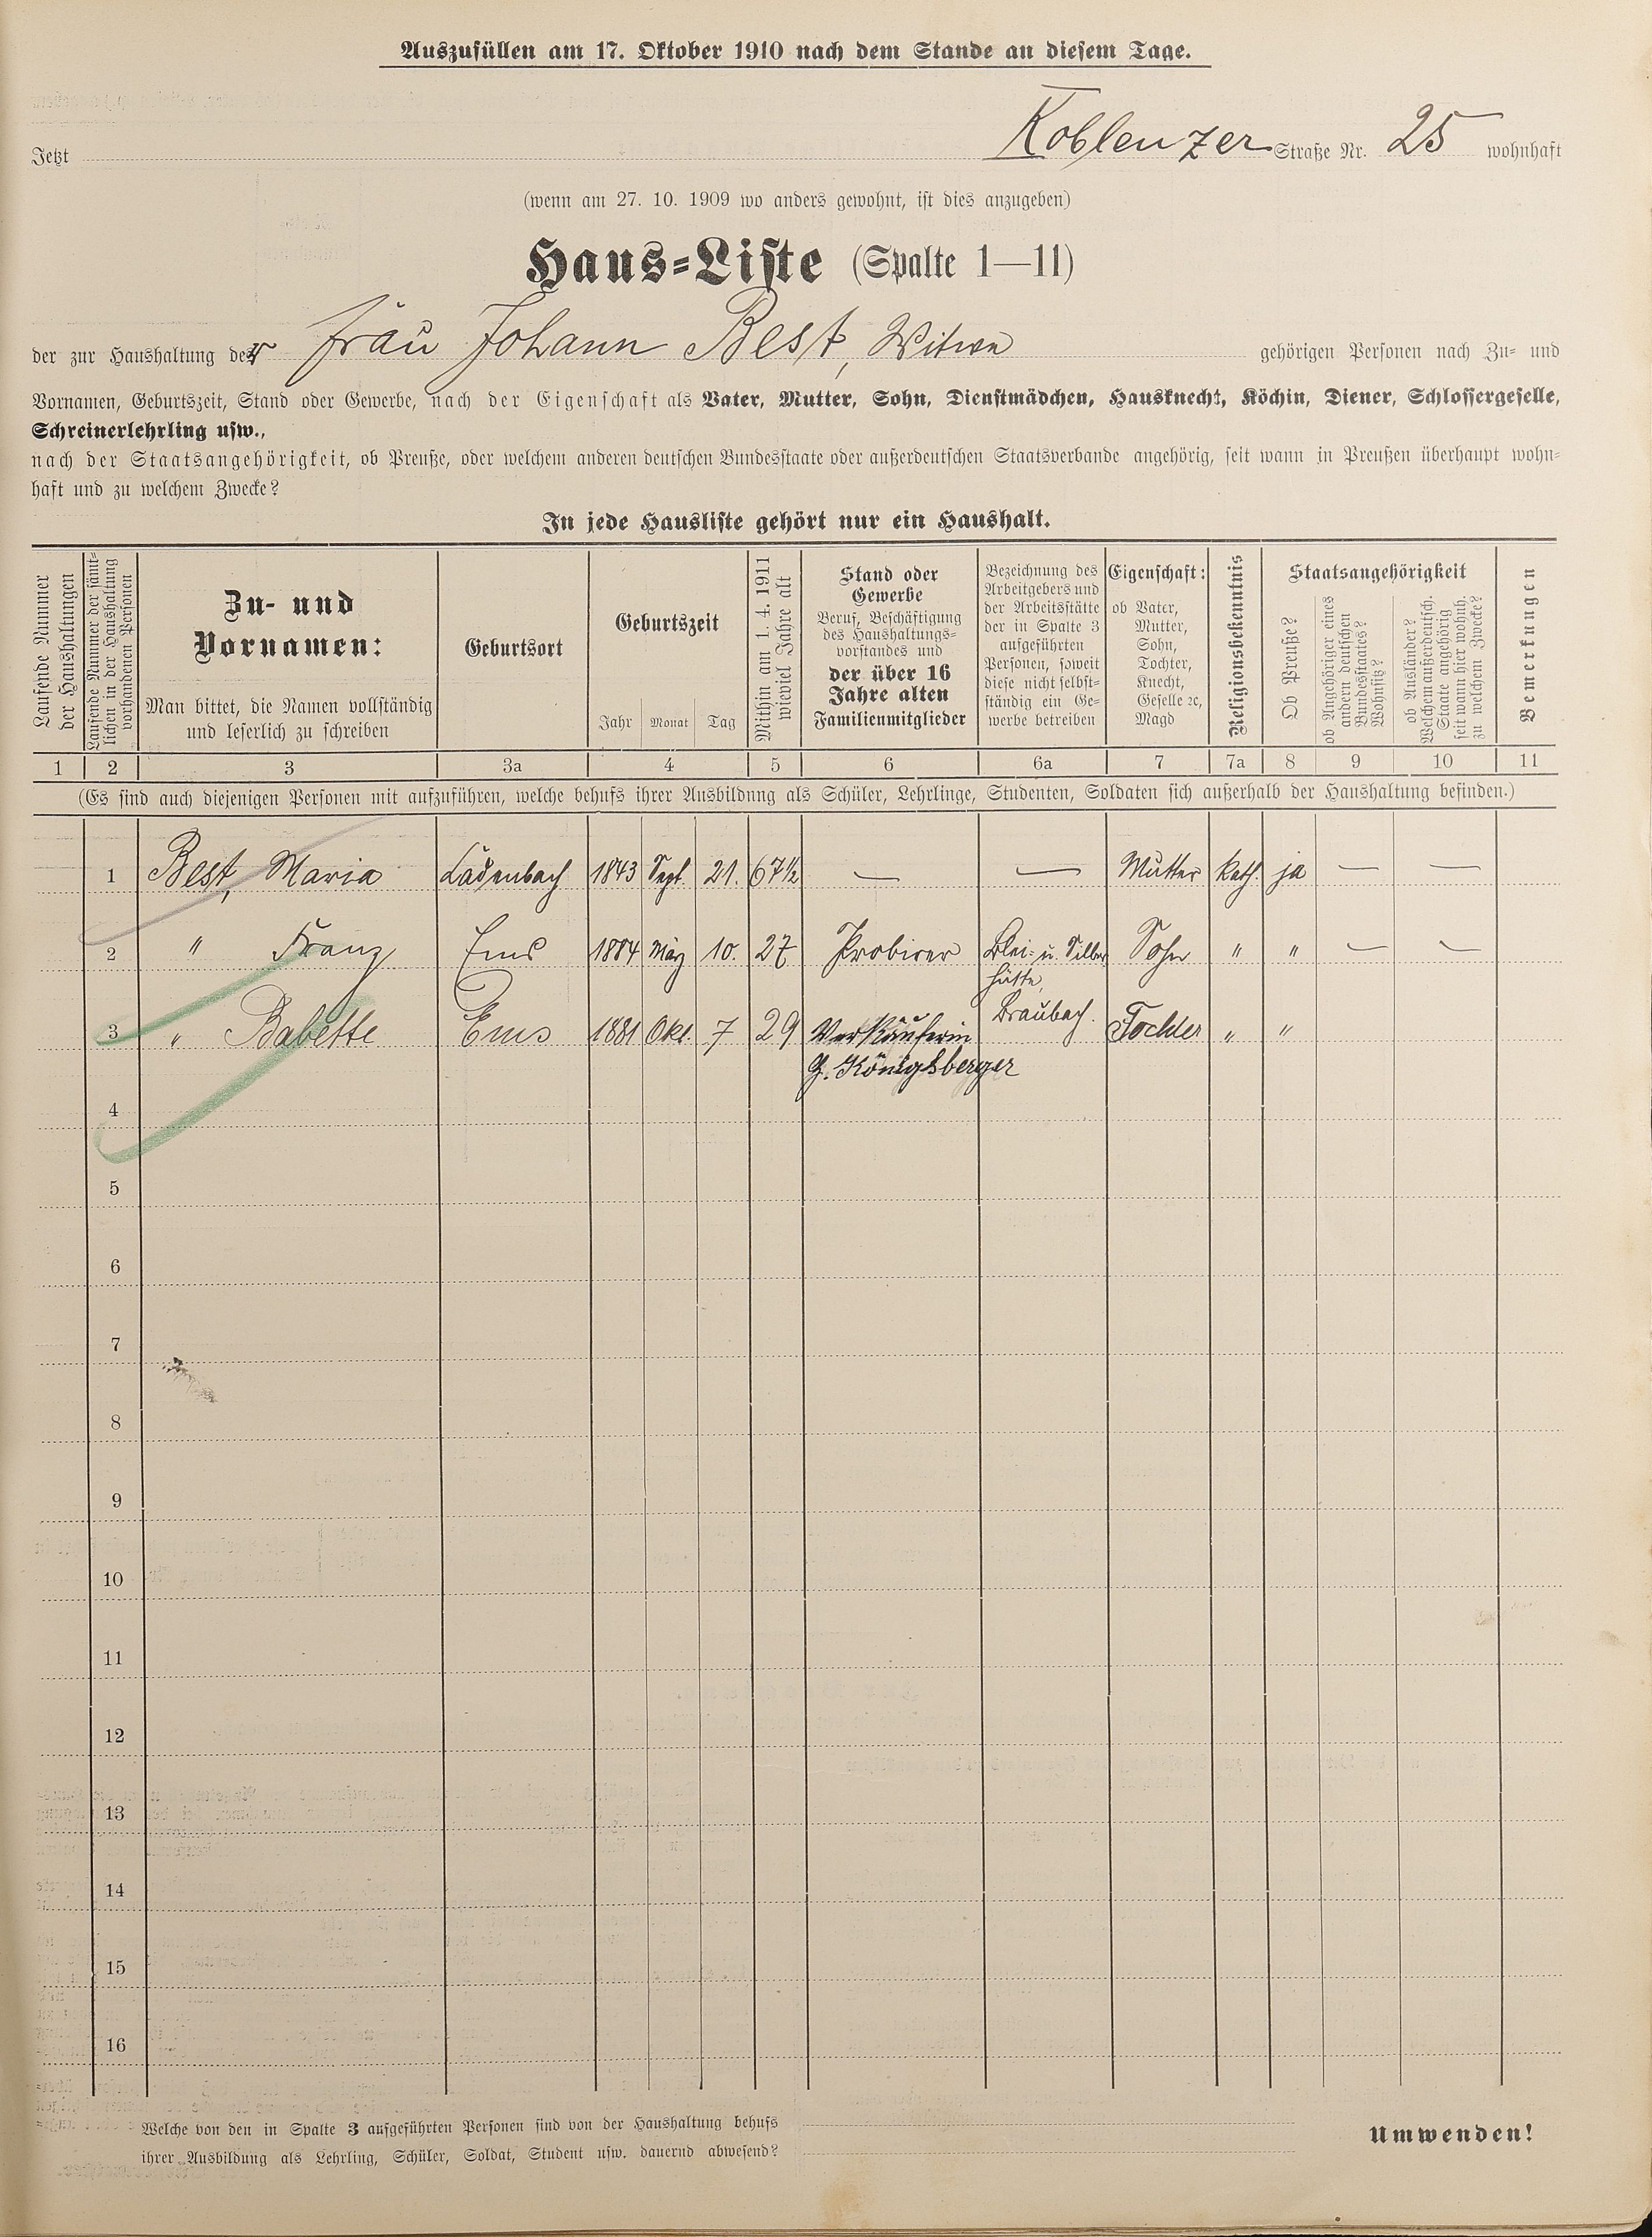 Auszufüllen am 17. Oktober 1910 nach dem Stande an diesem Tage.
Jetzt Koblenzer Straße Nr. 25 wohnhaft
(wenn am 27. 10. 1909 wo anders gewohnt, ist dies anzugeben)
Haus-Liste (Spalte 1—11)
der zur Haushaltung der Frau Johann Best, Witwe gehörigen Personen nach Zu- und
Vornamen, Geburtszeit, Stand oder Gewerbe, nach der Eigenschaft als Vater, Mutter, Sohn, Dienstmädchen, Hausknecht, Köchin, Diener, Schlossergeselle,
Schreinerlehrling usw.,
nach der Staatsangehörigkeit, ob Preuße, oder welchem anderen deutschen Bundesstaate oder außerdeutschen Staatsverbande angehörig, seit wann in Preußen überhaupt wohn-
haft und zu welchem Zwecke?
In jede Hausliste gehört nur ein Haushalt.
Laufende Nummer
der Haushaltungen
Laufende Nummer der sämt-
lichen in der Haushaltung
vorhandenen Personen
Zu- und
Vornamen:
Man bittet, die Namen vollständig
und leserlich zu schreiben
Geburtsort
Geburtszeit
Jahr Monat Tag
Mithin am 1. 4. 1911
wieviel Jahre alt
Stand oder
Gewerbe
Beruf, Beschäftigung
des Haushaltungs-
vorstandes und
der über 16
Jahre alten
Familienmitglieder
Bezeichnung des
Arbeitgebers und
der Arbeitsstätte
der in Spalte 3
aufgeführten
Personen, soweit
diese nicht selbst-
ständig ein Ge-
werbe betreiben
Eigenschaft:
ob Vater,
Mutter,
Sohn,
Tochter,
Knecht,
Geselle ꝛc,
Magd
Religionsbekenntnis
Staatsangehörigkeit
Ob Preuße?
ob Angehöriger eines
andern deutschen
Bundesstaates?
Wohnsitz?
ob Ausländer?
Welchem außerdeutsch.
Staate angehörig
seit wann hier wohnh.
zu welchem Zwecke?
Bemerkungen
1 2 3 3a 4 5 6 6a 7 7a 8 9 10 11
(Es sind auch diejenigen Personen mit aufzuführen, welche behufs ihrer Ausbildung als Schüler, Lehrlinge, Studenten, Soldaten sich außerhalb der Haushaltung befinden.)
1 Best, Maria 1843 Sept. 21. 67½ — — Mutter kath. ja — —
2 " Franz Ems 1884 10. 27 Probirer Blei- u. Silber Sohn " " — —
hütte,
Braubach.
3 " Babette Ems 1881 Okt. 7 29 Verkäuferin Tochter " "
Königsberger
4
5
6
7
8
9
10
11
12
13
14
15
16
Welche von den in Spalte 3 aufgeführten Personen sind von der Haushaltung behufs
ihrer Ausbildung als Lehrling, Schüler, Soldat, Student usw. dauernd abwesend?
Umwenden!